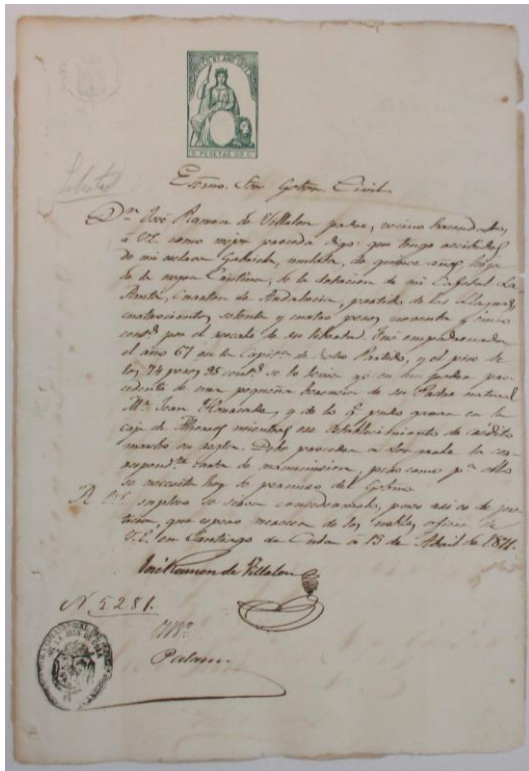 Libertad
Exmo. Sor. Gobor. Civil.
Dn. José Ramon de Villalon padre, vecino hacendado,
á V.E. como mejor proceda digo: que tengo recibidos
de mi esclava Gabriela, mulata, de quince años, hija
de la negra Cristina, de la dotacion de mi Cafetal La
Benita, Cuarton de Andalucia, partido de
cuatrocientos setenta y cuatro pesos noventa y cinco
cents. por el rescate de su libertad. Fué empadronada
el año 67 en la Capita. de dicho Partido, y el peso de
los 74 pesos 95 cents. se lo tenia yo en mi poder pro-
cedente de una pequeña herencia de su Padre natural
Mr. Juan y de lo q. pudo ganar en la
caja de Ahorros mientras ese establecimiento de crédito
marchó en regla. Debo proceder a otorgarle la cor-
respondte. carta de manumision, pero como pa. ello
se necesita hoy la permiso del Gobno.
A V.E. suplico se sirva concedermelo, pues asi es de jus-
ticia, que espero merecer de los nobles oficios de
V.E. en Santiago de Cuba á 13 de Abril de 1871.
José Ramon de Villalon
N. 5281.